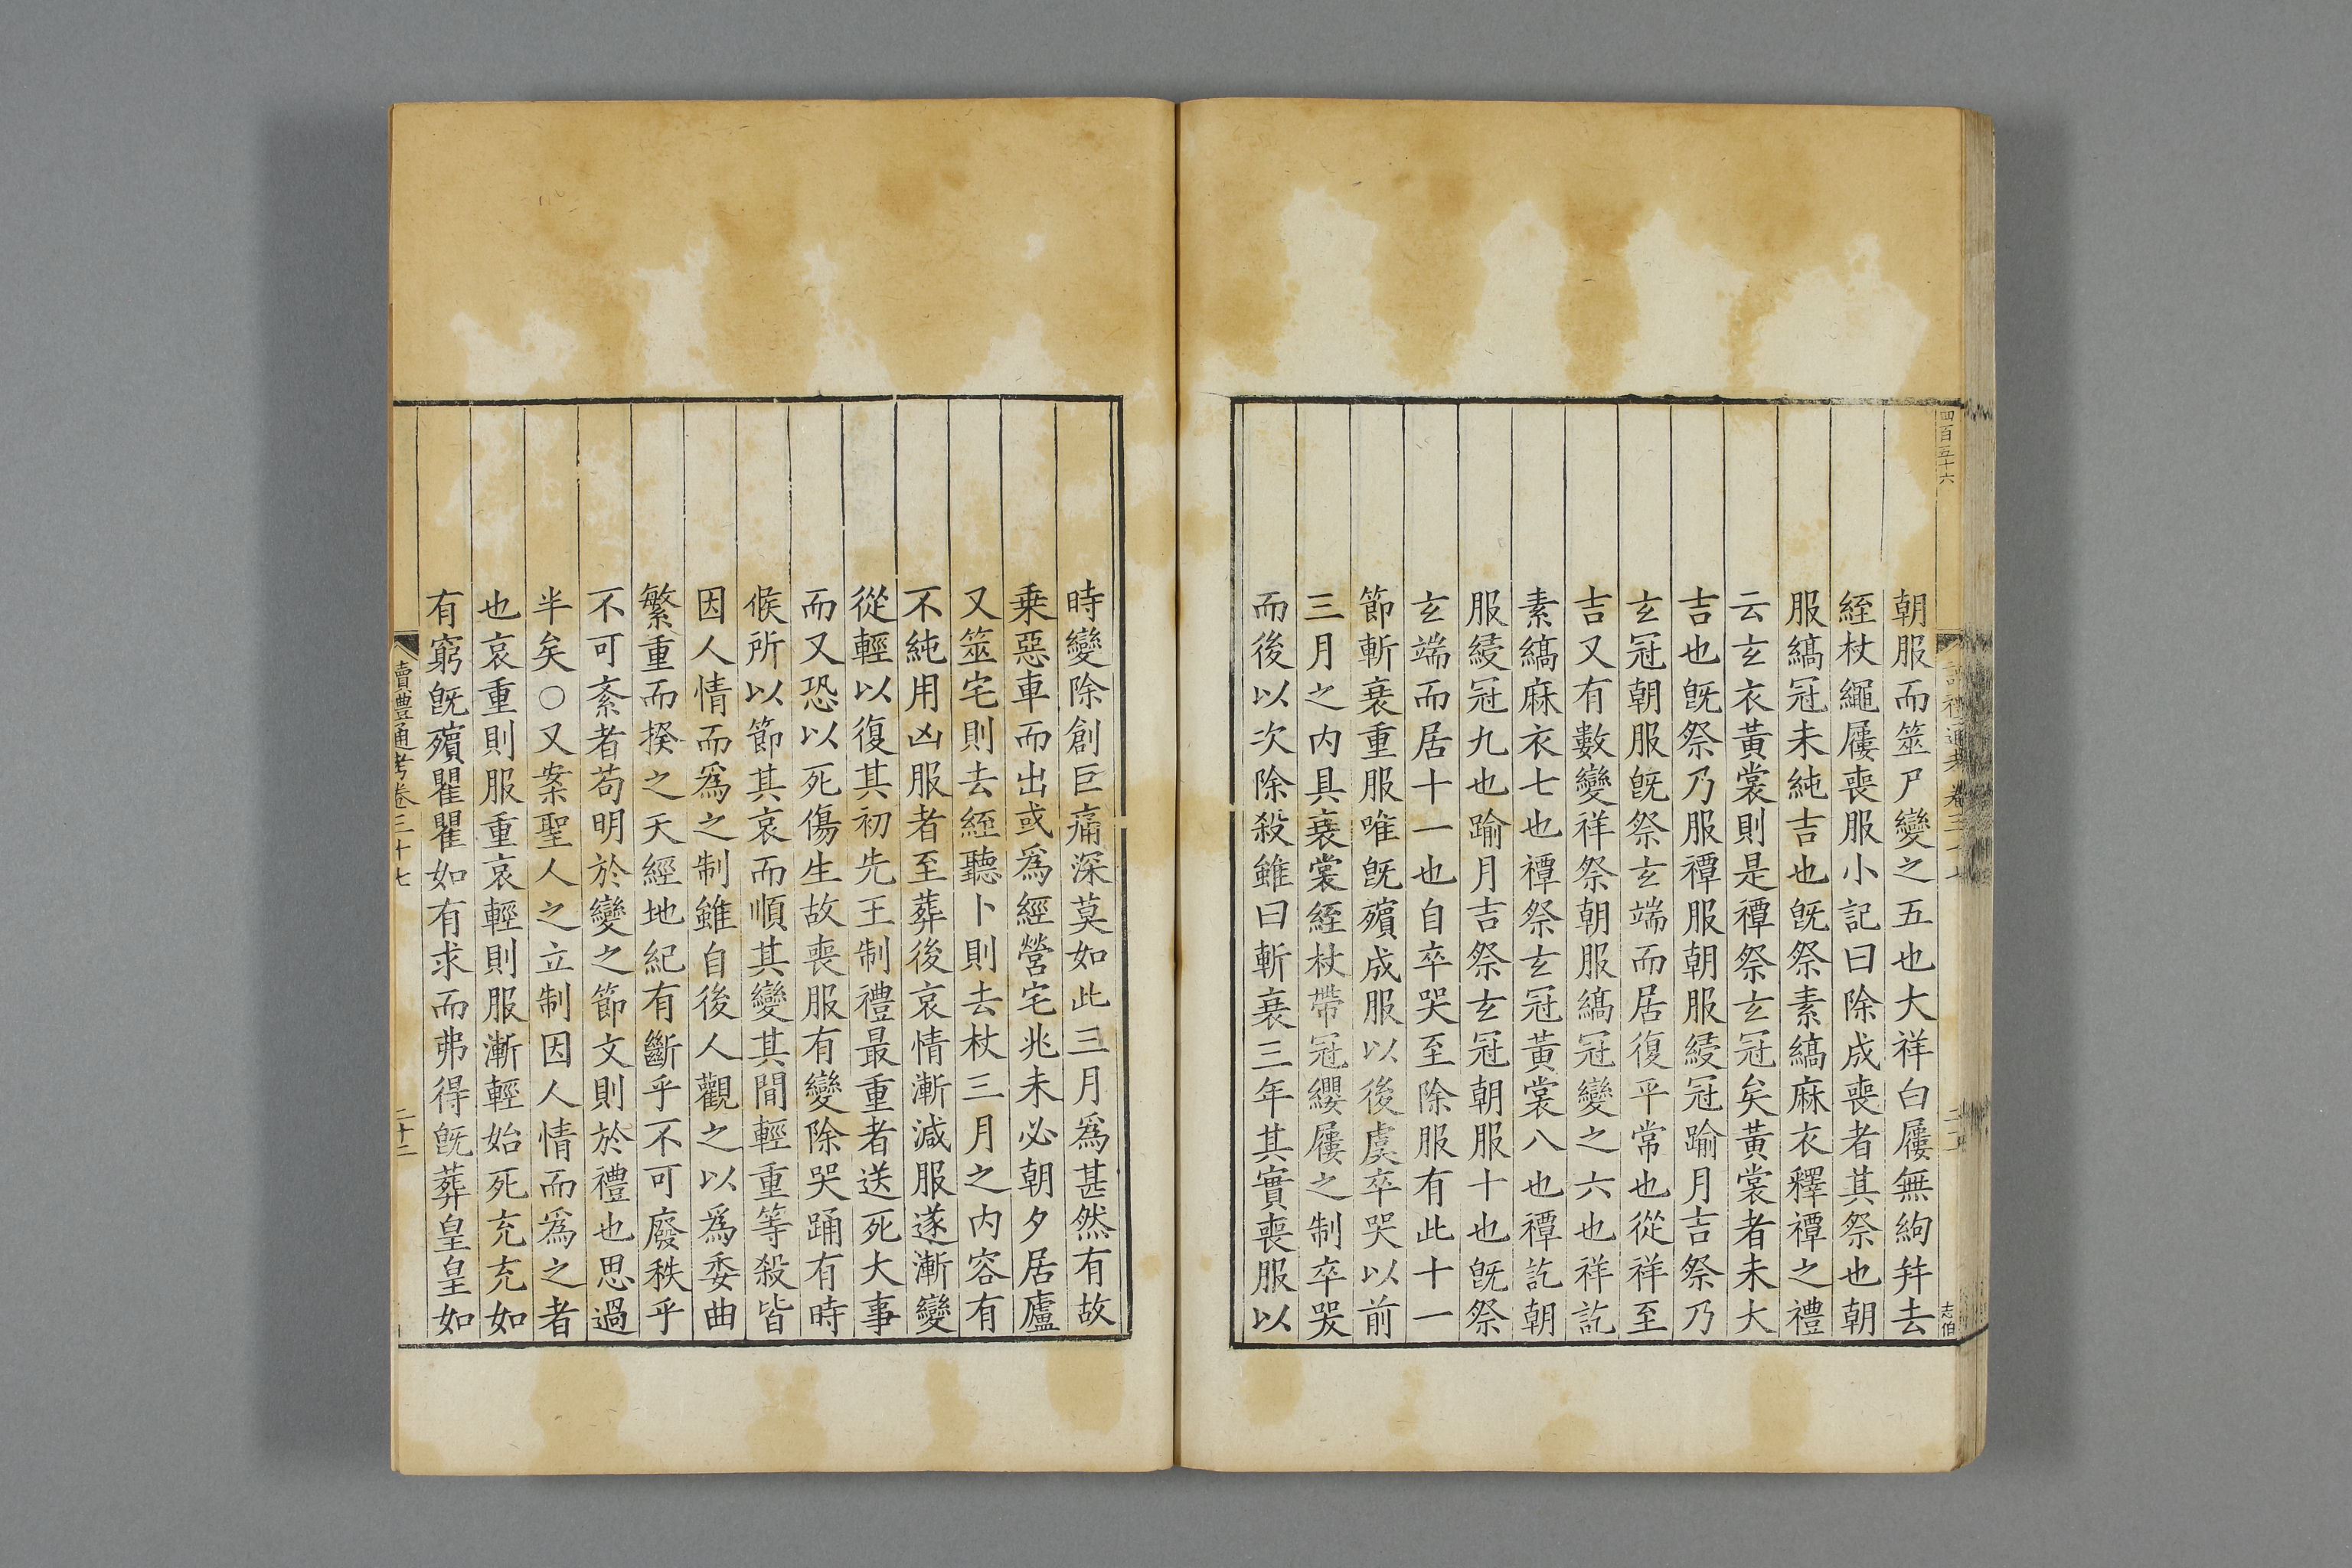 四百五十六
朝服而筮尸變之五也大祥白屨無絇并去
絰杖繩屨喪服小記曰除成喪者其祭也朝
服縞冠未純吉也旣祭素縞麻衣釋禫之禮
云玄衣黃裳則是禫祭玄冠矣黃裳者未大
吉也旣祭乃服禫服朝服綅冠踰月吉祭乃
玄冠朝服旣祭玄端而居復平常也從祥至
吉又有數變祥祭朝服縞冠變之六也祥訖
素縞麻衣七也禫祭玄冠黃裳八也禫訖朝
服綅冠九也踰月吉祭玄冠朝服十也旣祭
玄端而居十一也自卒哭至除服有此十一
節斬衰重服唯旣殯成服以後虞卒哭以前
三月之內具衰裳絰杖帶冠纓屨之制卒哭
而後以次除殺雖曰斬衰三年其實喪服以
志伯
時變除創巨痛深莫如此三月爲甚然有故
乗惡車而出或爲經營宅兆未必朝夕居廬
又筮宅則去絰聽卜則去杖三月之內容有
不純用凶服者至葬後哀情漸減服遂漸變
從輕以復其初先王制禮最重者送死大事
而又恐以死傷生故喪服有變除哭踊有時
候所以節其哀而順其變其間輕重等殺皆
因人情而爲之制雖自後人觀之以爲委曲
繁重而揆之天經地紀有斷乎不可廢秩乎
不可紊者苟明於變之節文則於禮也思過
半矣○又案聖人之立制因人情而爲之者
也哀重則服重哀輕則服漸輕始死充充如
有窮旣殯瞿瞿如有求而弗得旣葬皇皇如
讀禮通考卷三十七
二十二